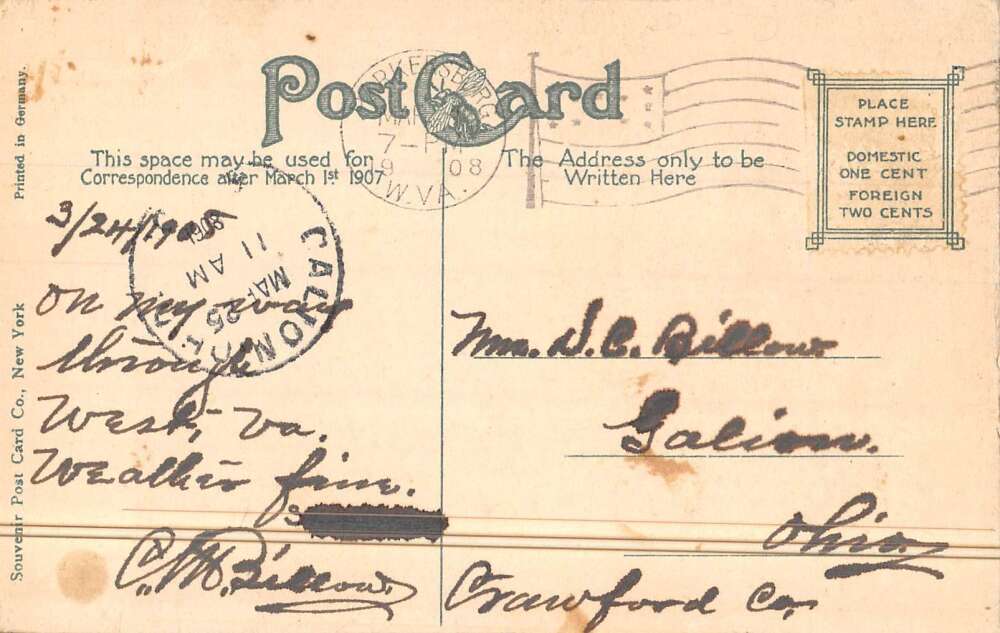 Post Card
PARKERSBURG
MAR
7-PM
08
W.VA.
This space may be used for
Correspondence after March 1st 1907
The Address only to be
Written Here
PLACE
STAMP HERE
DOMESTIC
ONE CENT
FOREIGN
TWO CENTS
Printed in Germany.
Souvenir Post Card Co., New York
3/24/1908
GALION, OHIO
MAR 25
11 AM
1908
On my way
through
West, Va.
Weather fine.
C. M. Billow
Mrs. S. C. Billow
Galion.
Ohio
Crawford Co.